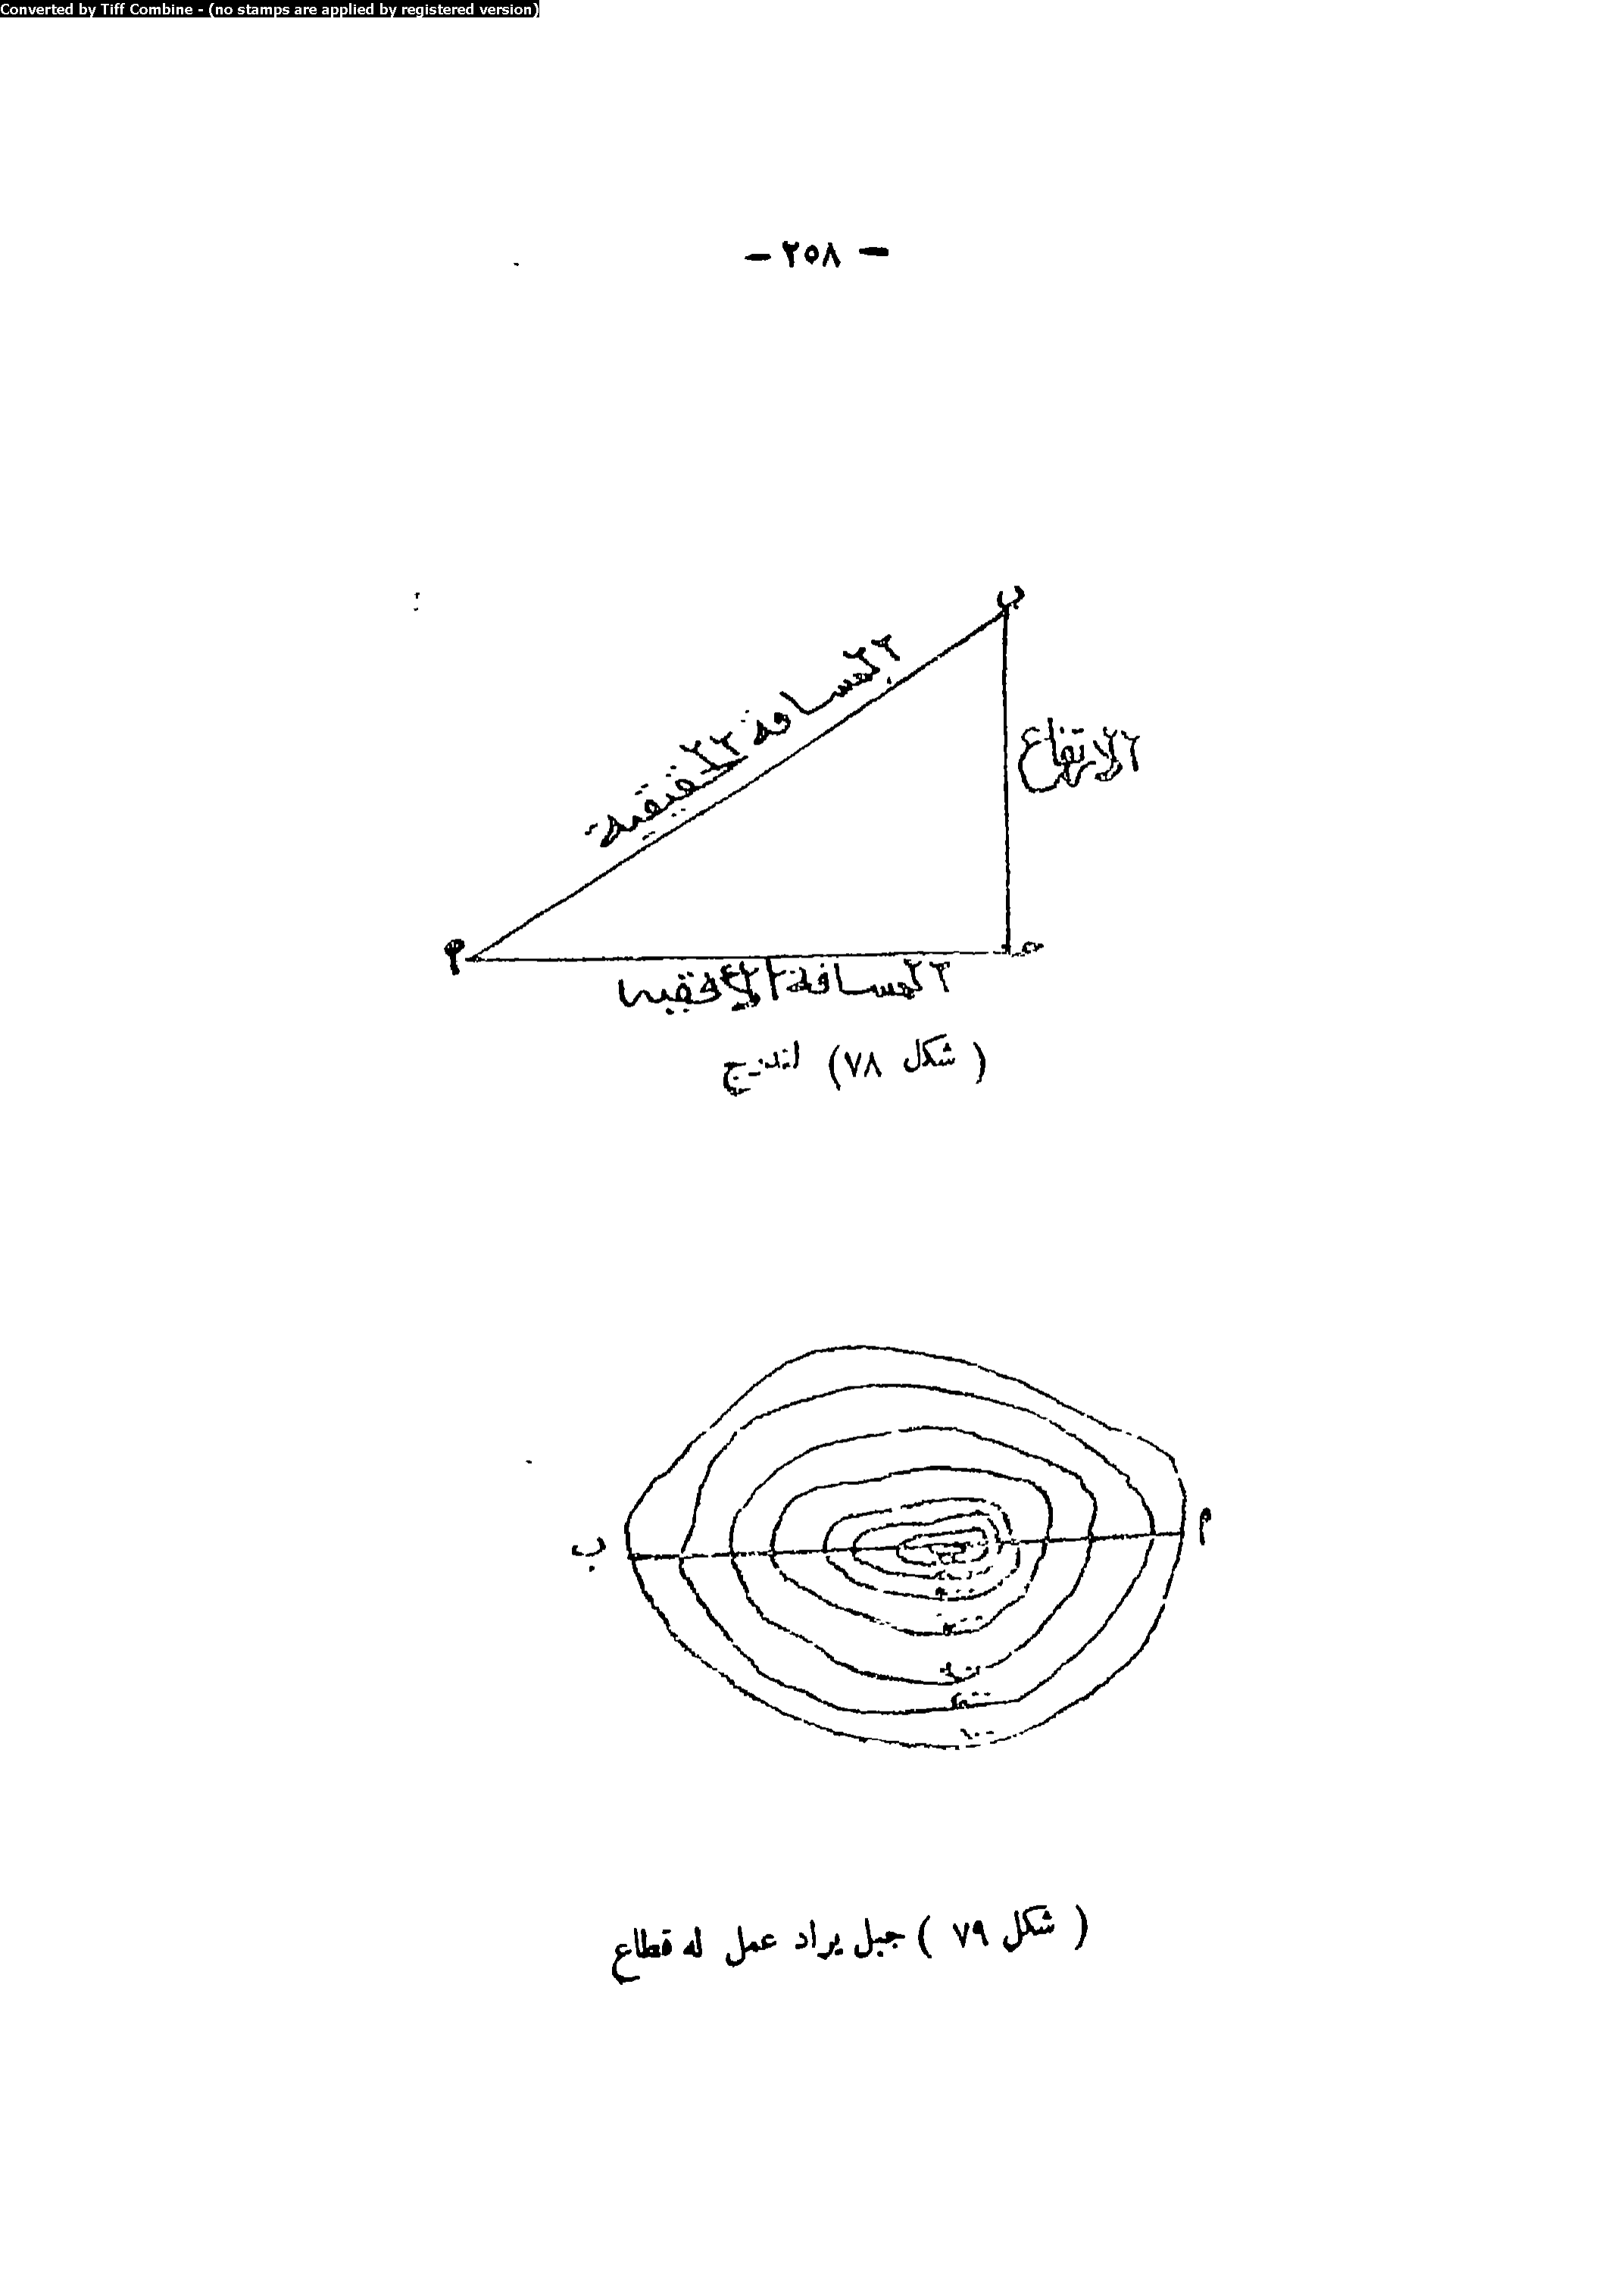 Converted by Tiff Combine - (no stamps are applied by registered version)
— ٢٥٨ —
ب
المسافة الحقيقية
الارتفاع
م
حـ
المسافة الأفقية
( شكل ٧٨ )
م
ب
( شكل ٧٩ ) جبل يراد عمل له قطاع